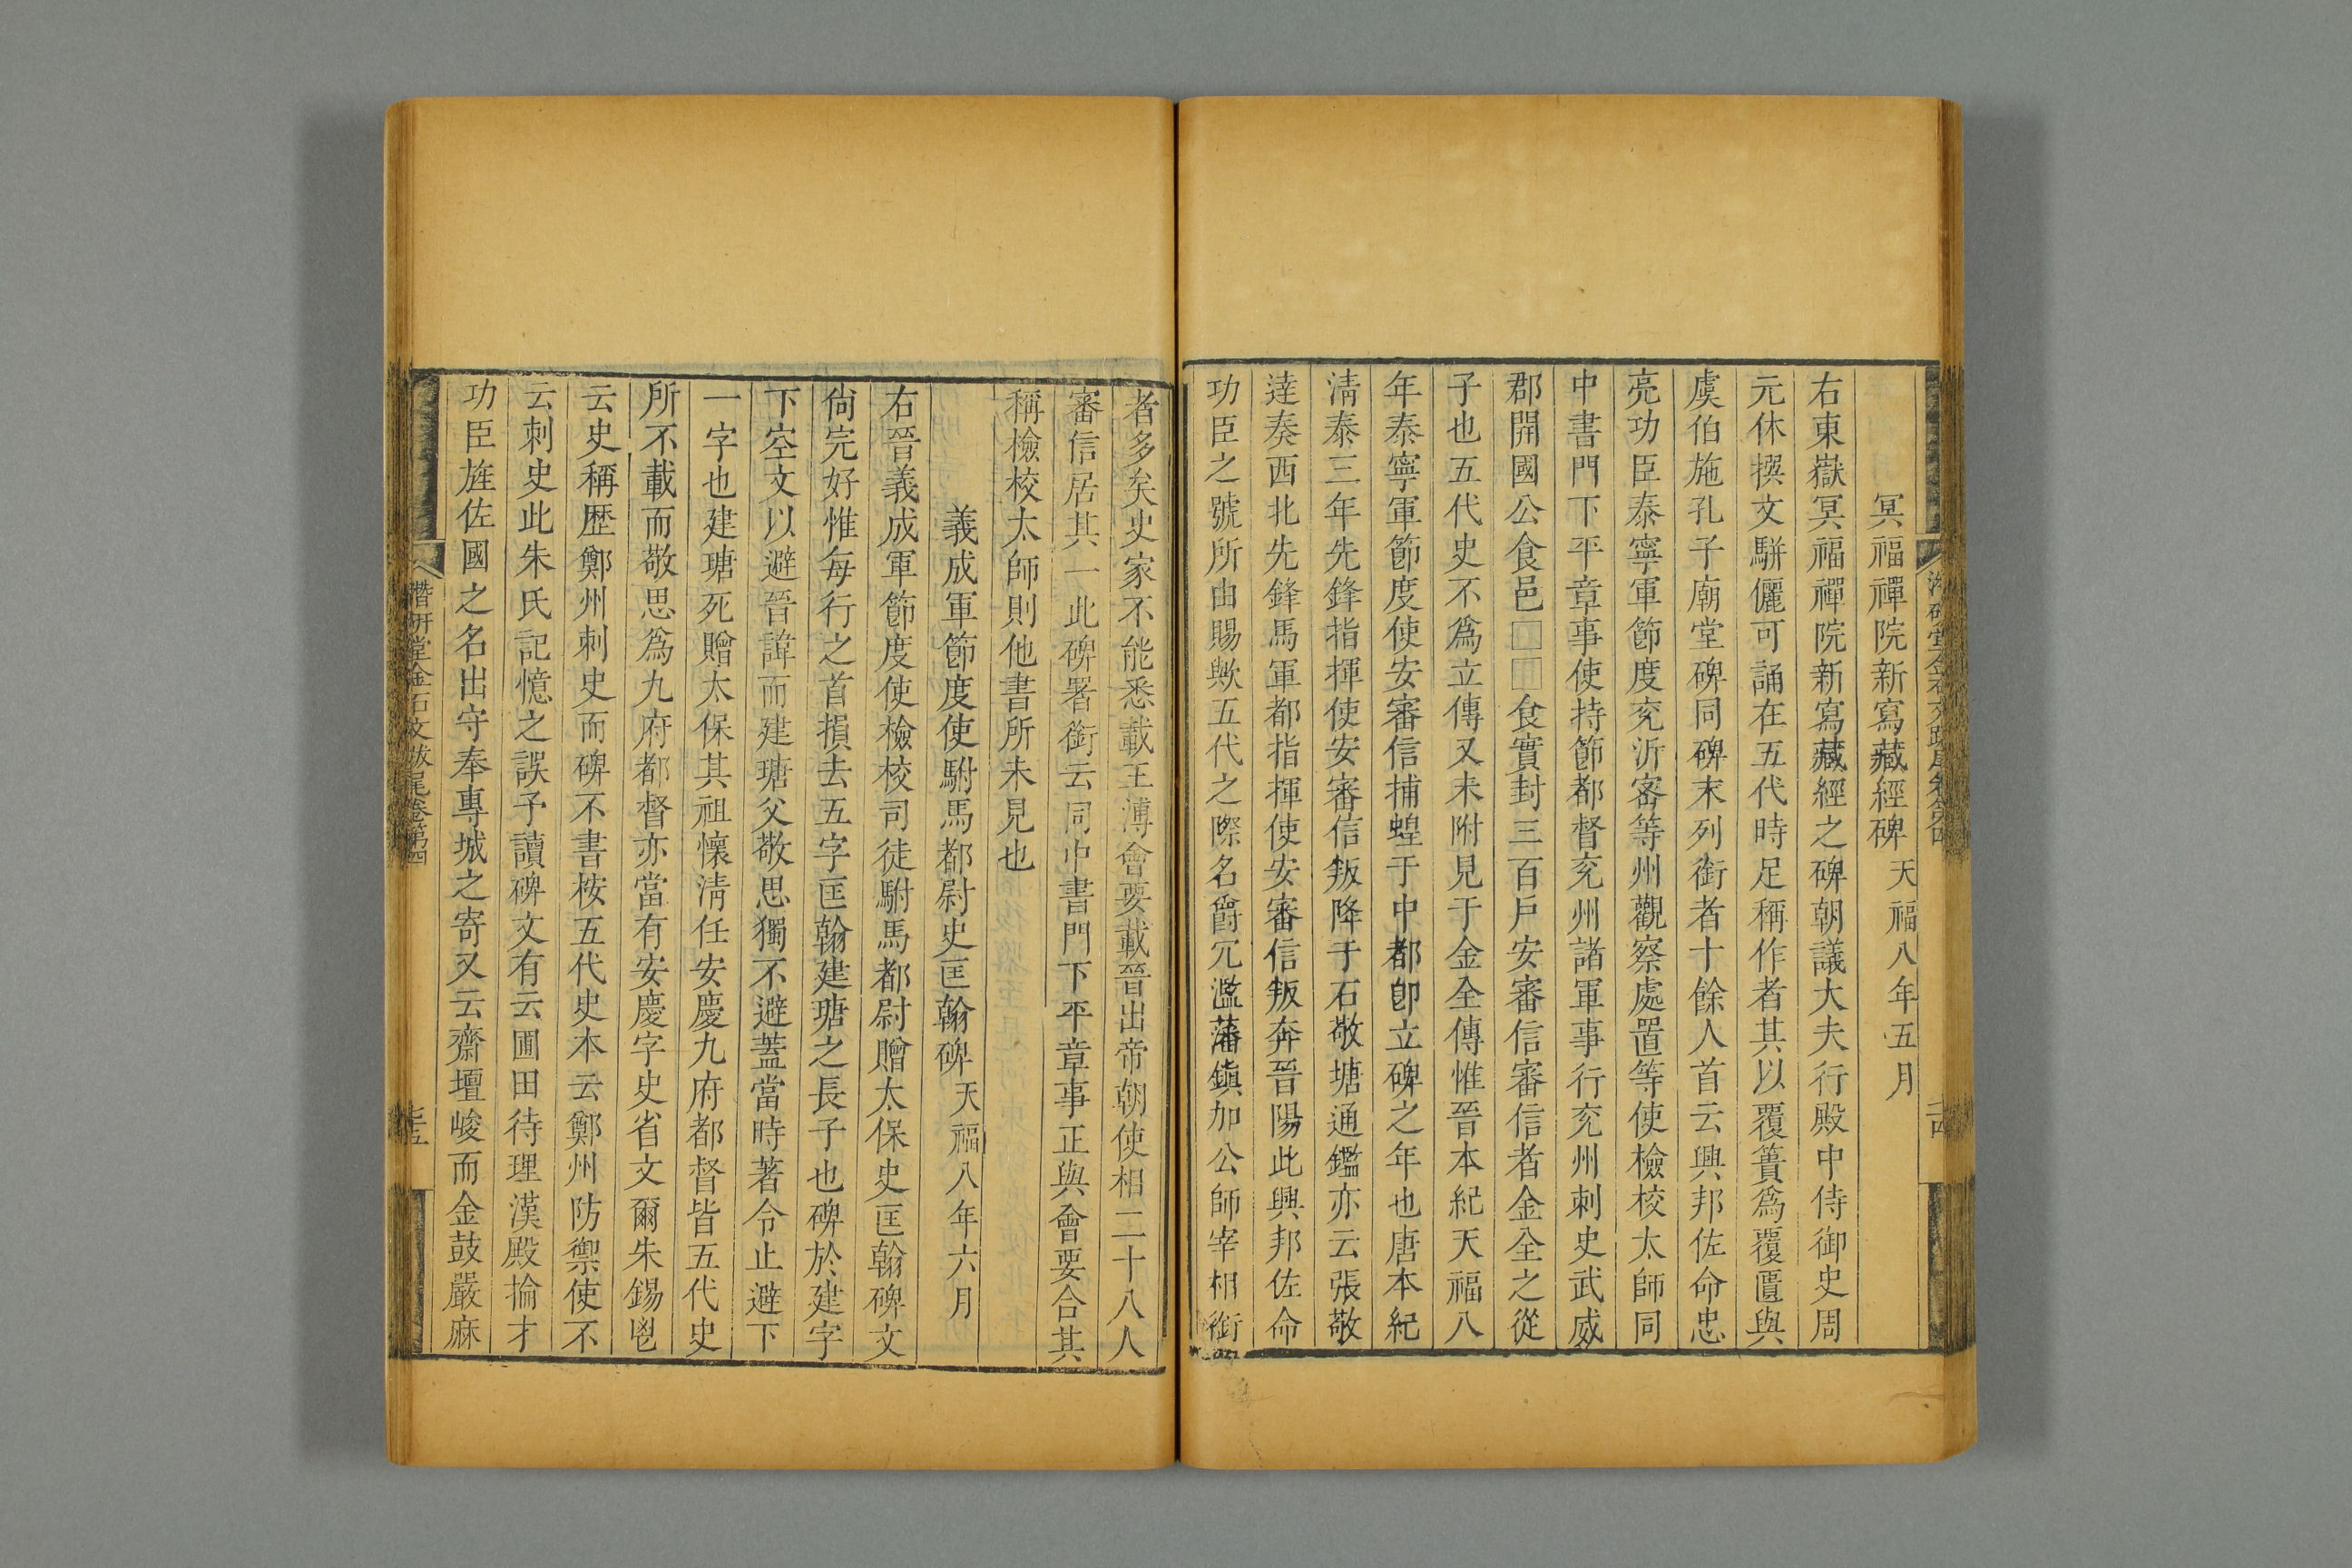 冥福禪院新寫藏經碑天福八年五月
右東嶽冥福禪院新寫藏經之碑朝議大夫行殿中侍御史周
元休撰文駢儷可誦在五代時足稱作者其以覆簣爲覆匱與
虞伯施孔子廟堂碑同碑末列銜者十餘人首云興邦佐命忠
亮功臣泰寧軍節度兖沂宻等州觀察處置等使檢校太師同
中書門下平章事使持節都督兖州諸軍事行兖州刺史武威
郡開國公食邑□□食實封三百戶安審信審信者金全之從
子也五代史不爲立傳又未附見于金全傳惟晉本紀天福八
年泰寧軍節度使安審信捕蝗于中都卽立碑之年也唐本紀
淸泰三年先鋒指揮使安審信叛降于石敬塘通鑑亦云張敬
達奏西北先鋒馬軍都指揮使安審信叛奔晉陽此興邦佐命
功臣之號所由賜歟五代之際名爵冗濫藩鎭加公師宰相銜
者多矣史家不能悉載王溥會要載晉出帝朝使相二十八人
審信居其一此碑署銜云同中書門下平章事正與會要合其
稱檢校太師則他書所未見也
義成軍節度使駙馬都尉史匡翰碑天福八年六月
右晉義成軍節度使檢校司徒駙馬都尉贈太保史匡翰碑文
尙完好惟每行之首損去五字匡翰建瑭之長子也碑於建字
下空文以避晉諱而建瑭父敬思獨不避蓋當時著令止避下
一字也建瑭死贈太保其祖懷淸任安慶九府都督皆五代史
所不載而敬思爲九府都督亦當有安慶字史省文爾朱錫鬯
云史稱歷鄭州刺史而碑不書桉五代史本云鄭州防禦使不
云刺史此朱氏記憶之誤予讀碑文有云圃田待理漢殿掄才
功臣旌佐國之名出守奉專城之寄又云齋壇峻而金鼓嚴麻
潛研堂金石文跋尾卷第四